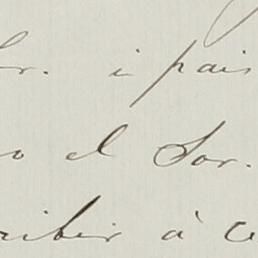 or. i pais
o el Sor.
ribir á